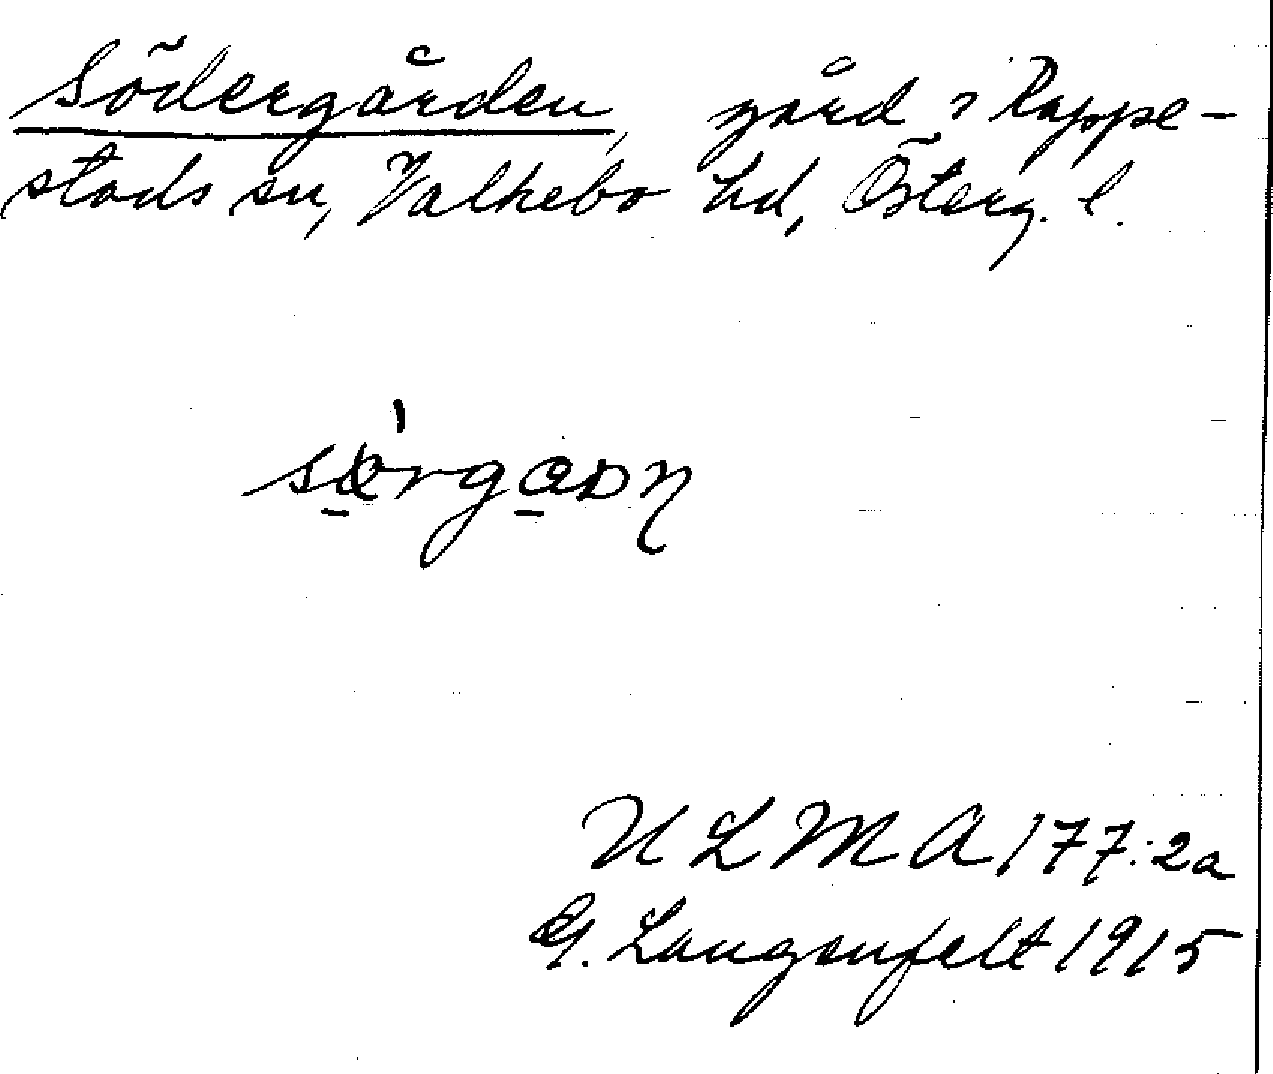 Södergården, gård i Rappe-
stads sn, Valkebo hd, Österg. l.
sœ̠̀rgɑ̠ᴅn̥
ULMA 177:2a
G. Langenfelt 1915